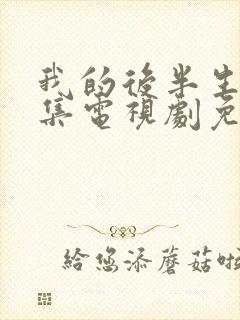 我的後半生
集電視劇免
給您添蘑菇啦